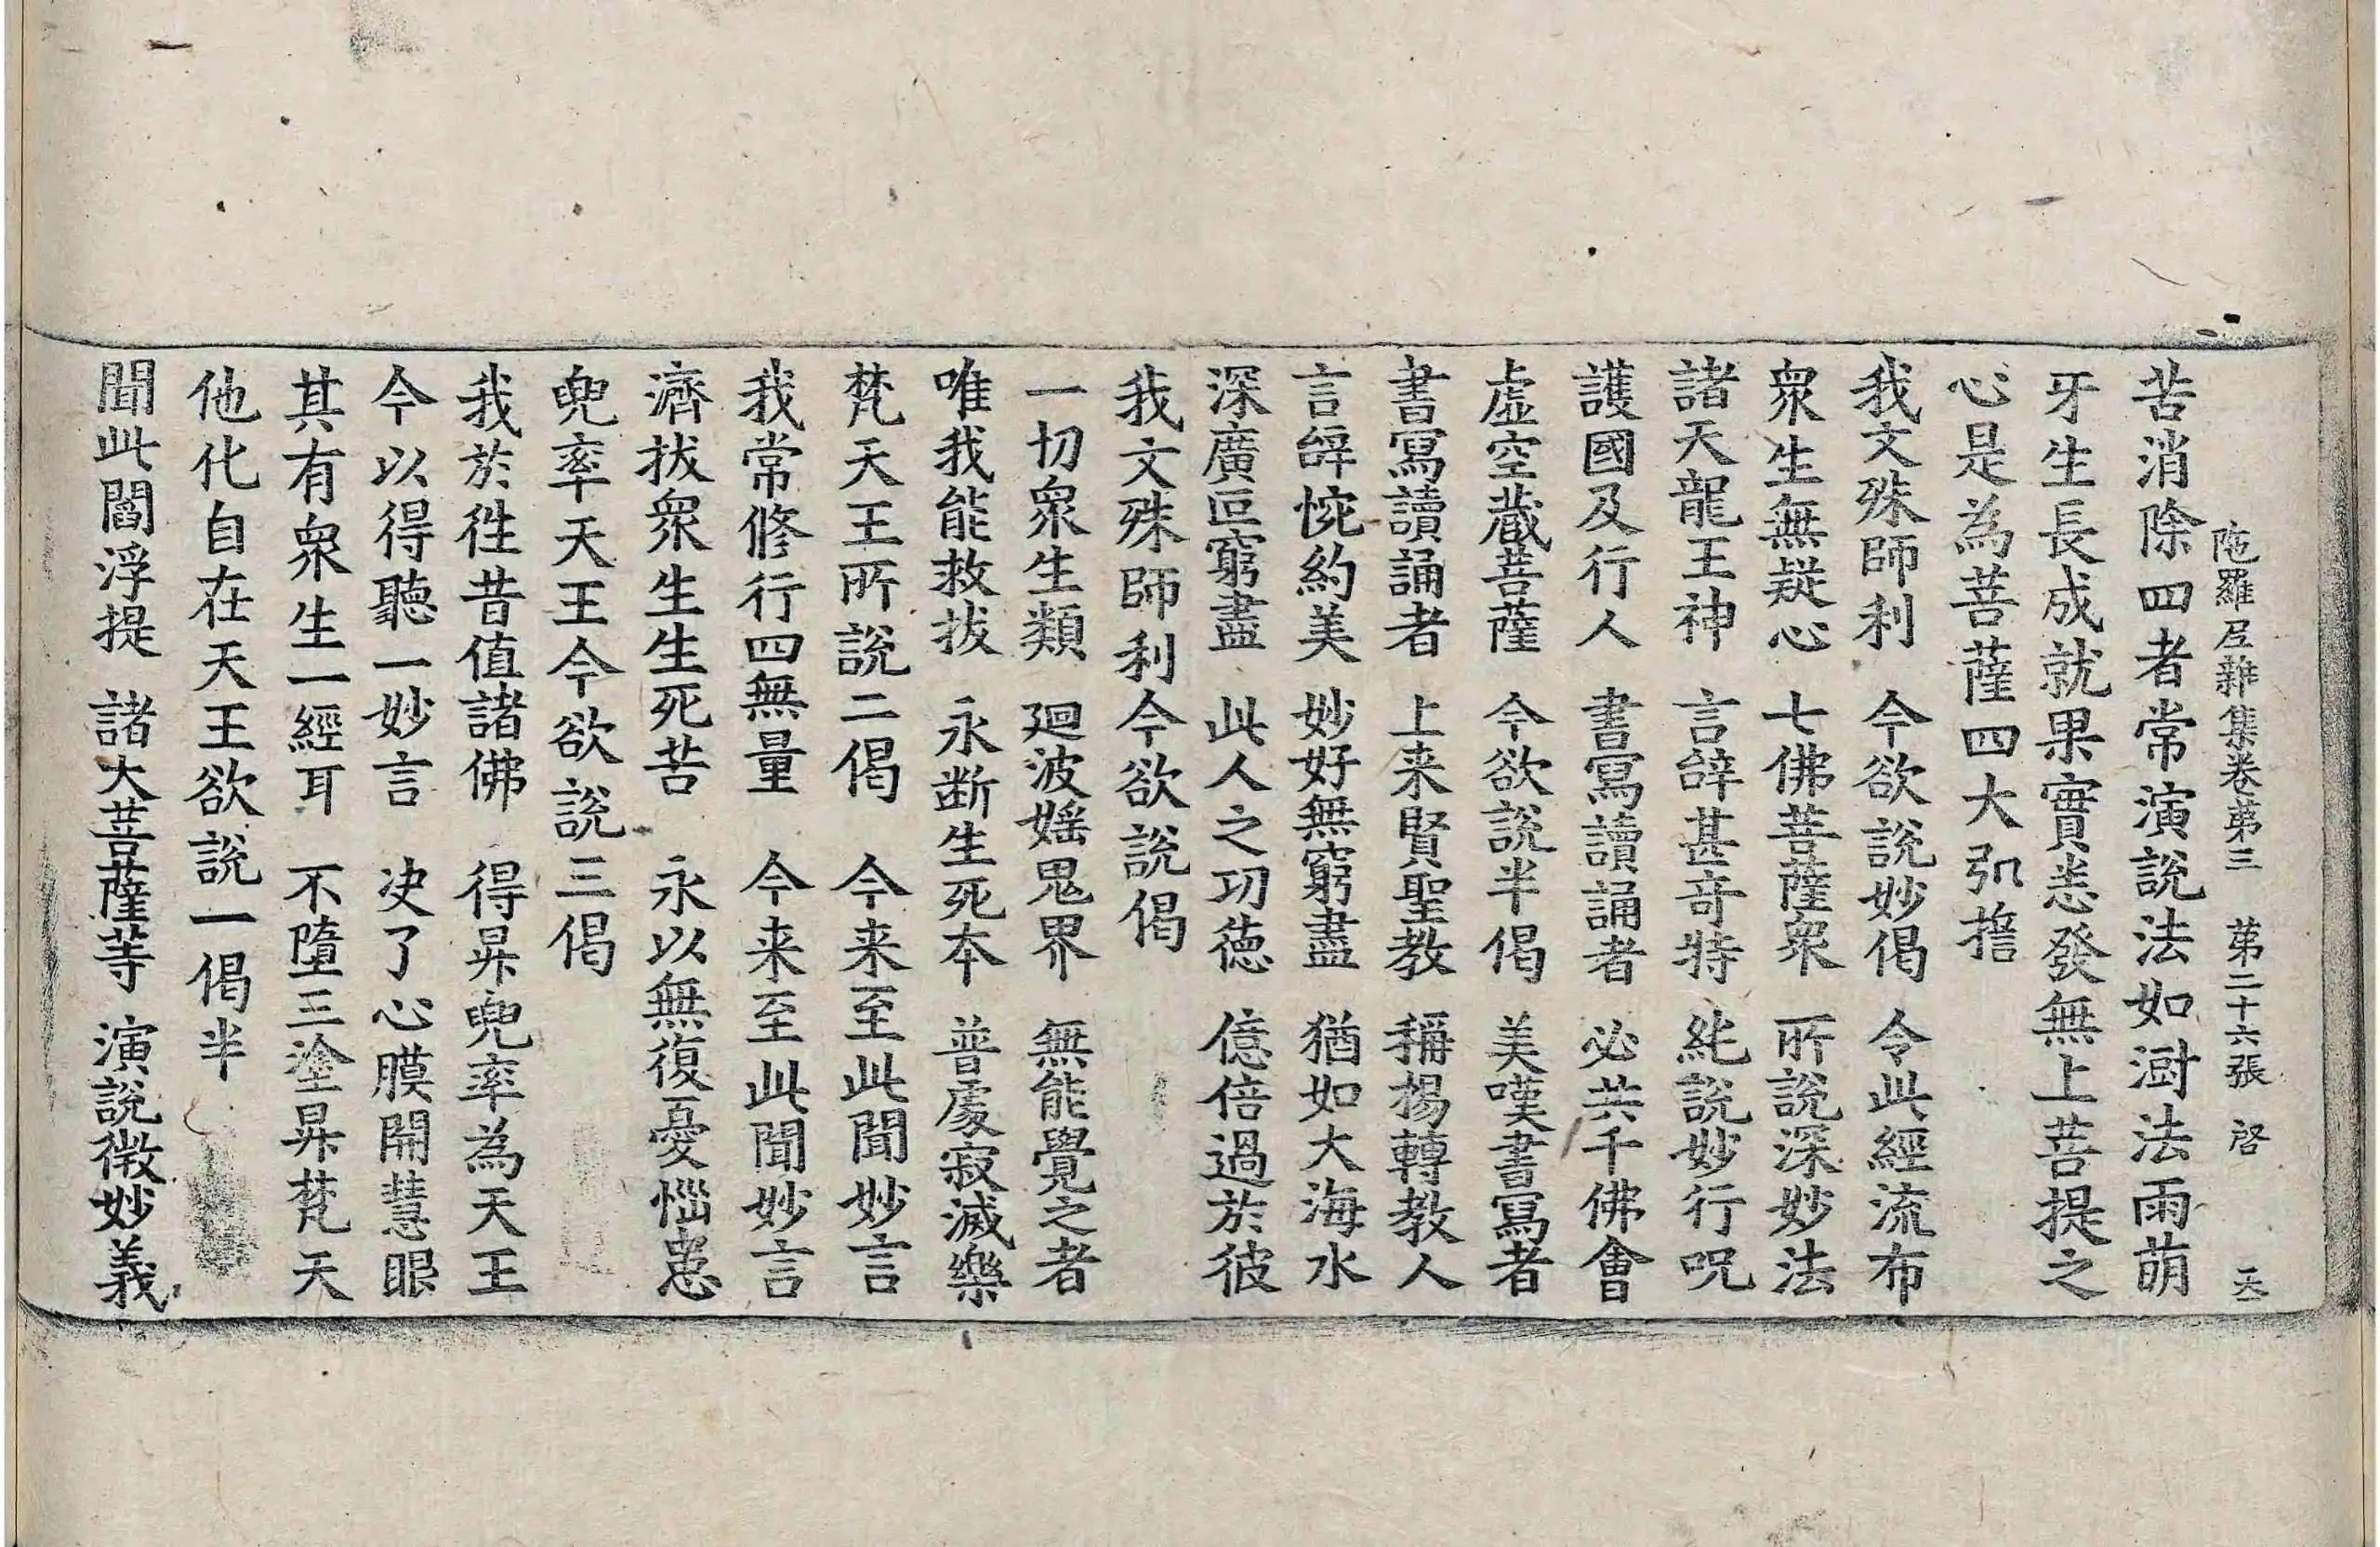 陁羅尼雜集卷第三 第二十六張 啓 天
苦消除四者常演說法如澍法雨萌
牙生長成就果實悉發無上菩提之
心是為菩薩四大弘擔
我文殊師利 今欲說妙偈 令此經流布
衆生無疑心 七佛菩薩衆 所說深妙法
諸天龍王神 言辝甚竒特 純說妙行呪
護國及行人 書寫讀誦者 必共千佛會
虛空蔵菩薩 今欲說半偈 美嘆書寫者
書寫讀誦者 上来賢聖教 稱揚轉教人
言辝惋約美 妙好無窮盡 猶如大海水
深廣叵窮盡 此人之功德 億倍過於彼
我文殊師利今欲說偈
一切衆生類 廻波婬鬼界 無能覺之者
唯我能救拔 永断生死本 普處寂滅樂
梵天王所說二偈 今来至此聞妙言
我常修行四無量 今来至此聞妙言
濟拔衆生生死苦 永以無復憂惱患
兜率天王今欲說三偈
我於徃昔值諸佛 得昇兜率為天王
今以得聽一妙言 决了心膜開慧眼
其有衆生一經耳 不墮三塗昇梵天
他化自在天王欲說一偈半
聞此閻浮提 諸大菩薩等 演說微妙義